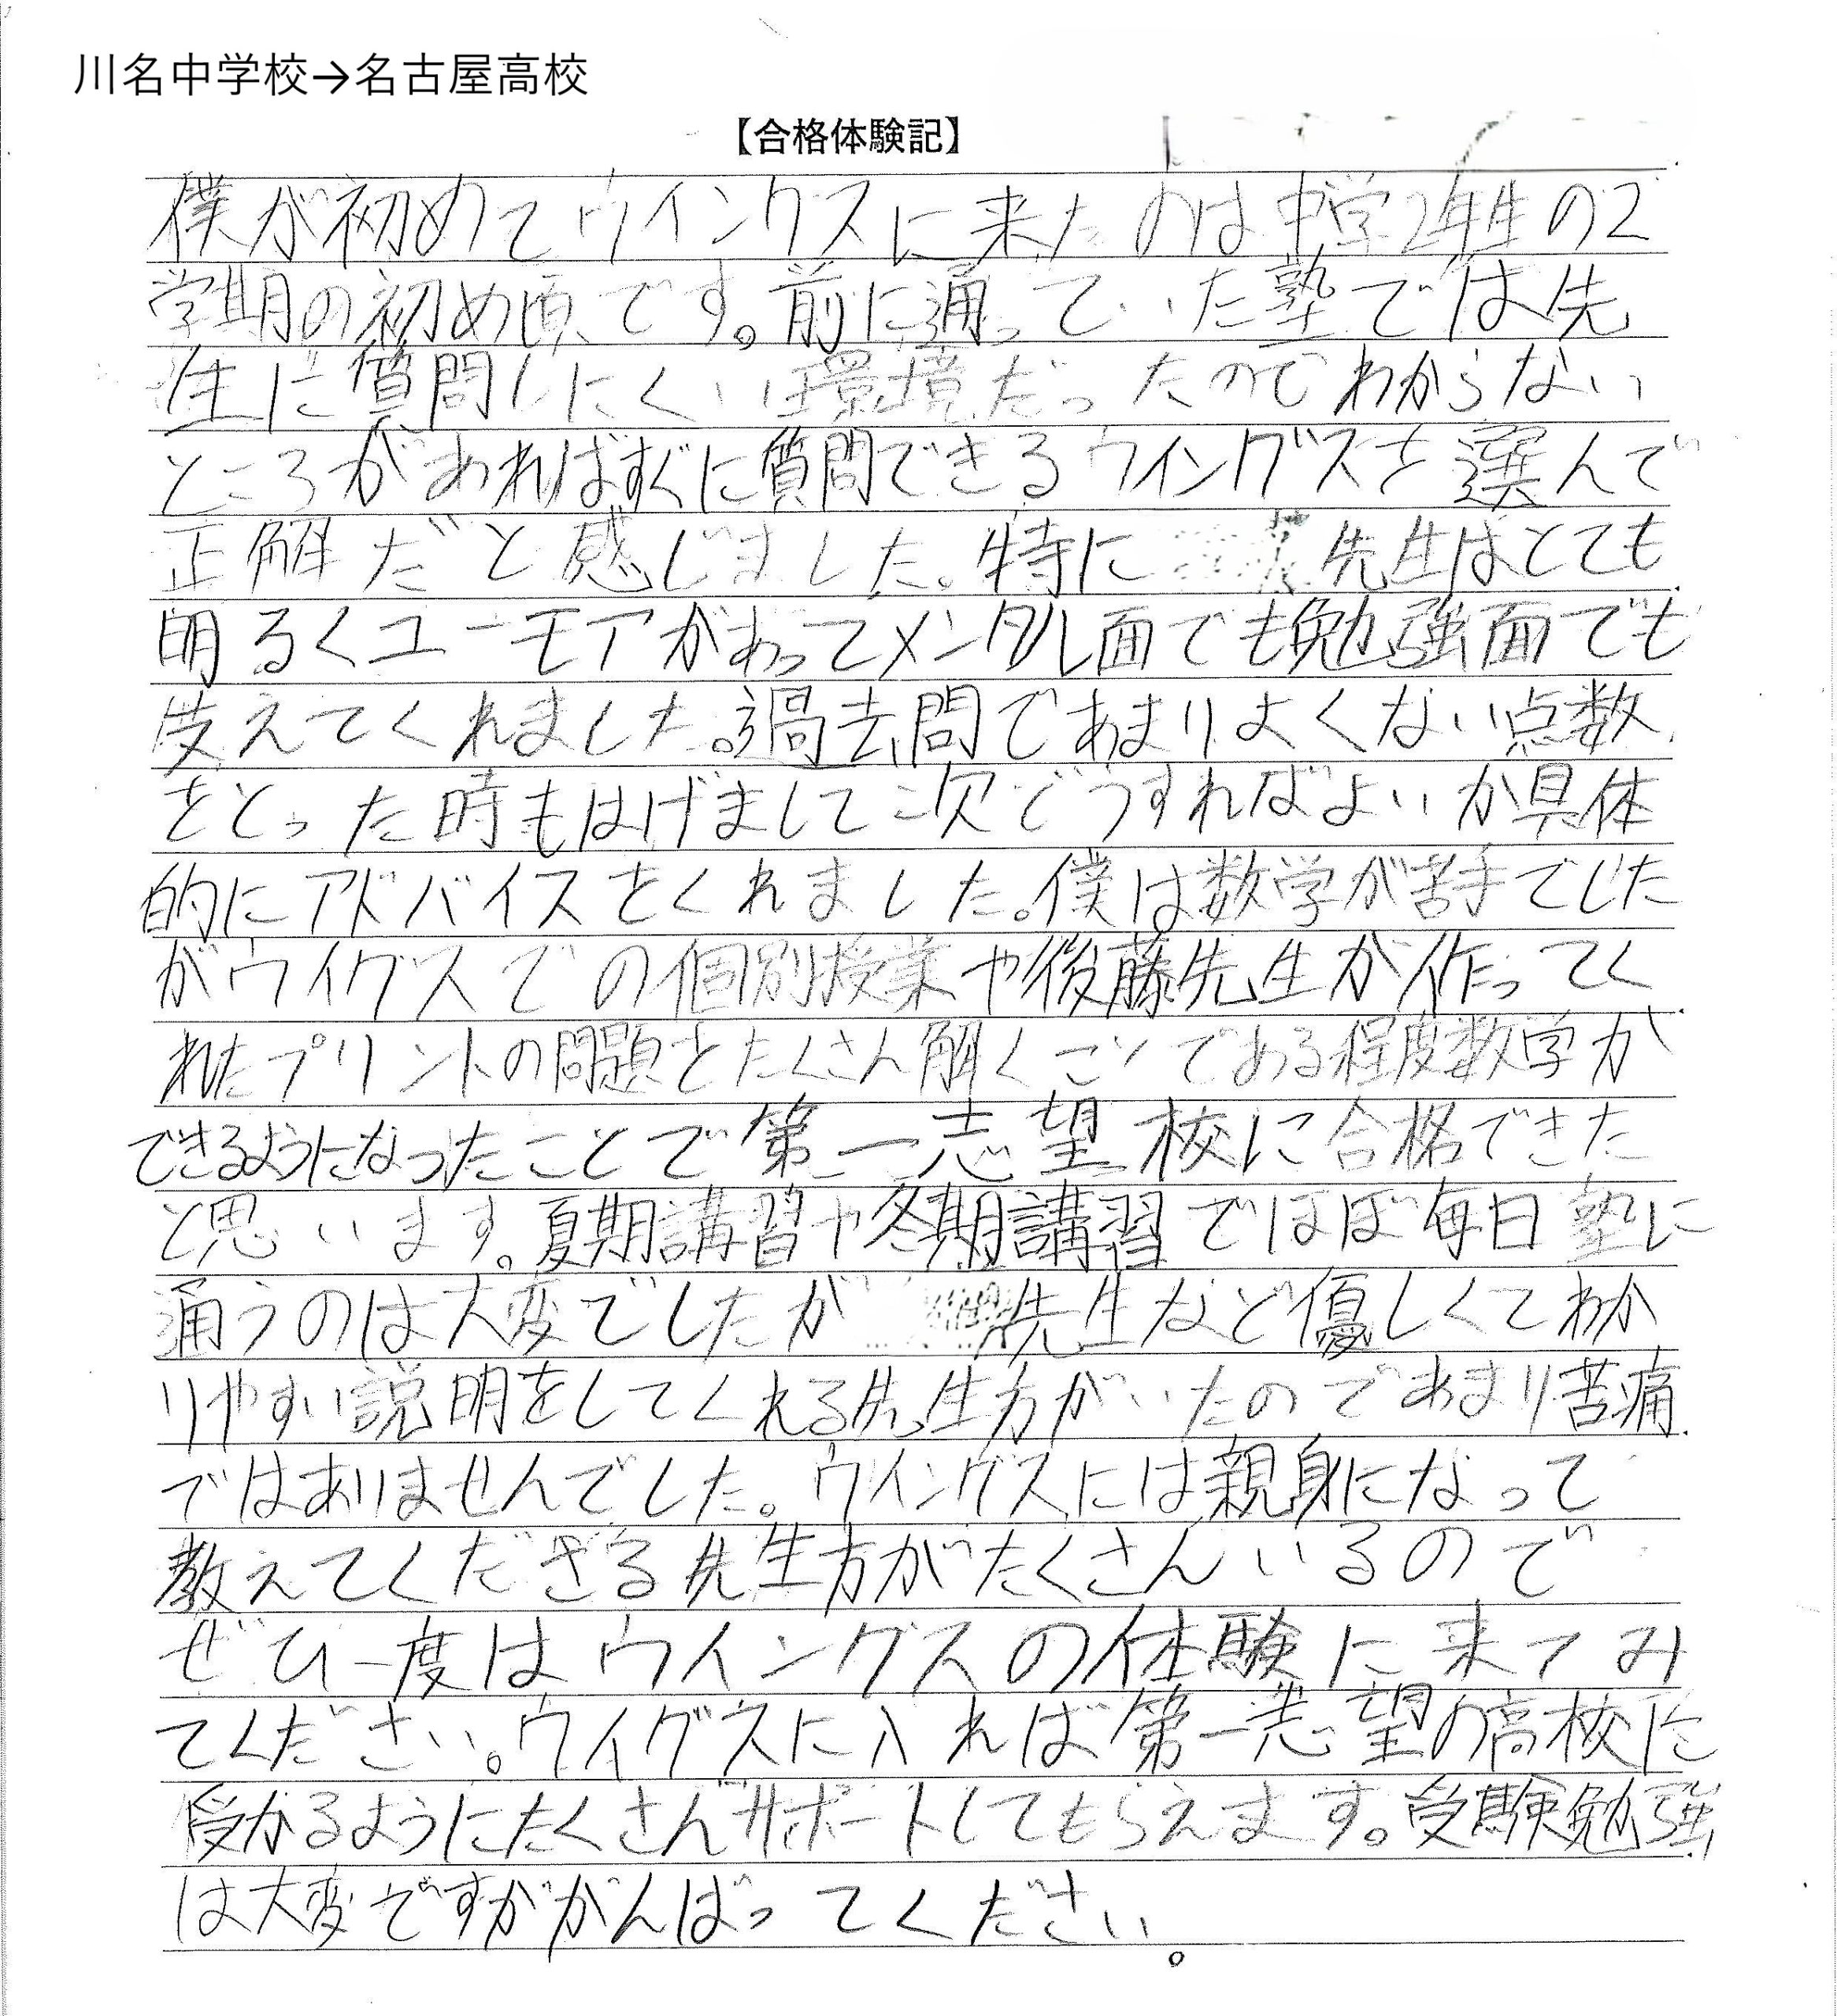 川名中学校→名古屋高校
【合格体験記】
僕が初めてウイングスに来たのは中学2年生の2
学期の初め頃です。前に通っていた塾では先
生に質問しにくい環境だったのでわからない
ところがあればすぐに質問できるウイングスを選んで
正解だと感じました。特に 先生はとても
明るくユーモアがあってメンタル面でも勉強面でも
支えてくれました。過去問であまりよくない点数
をとった時もはげまして次どうすればよいか具体
的にアドバイスをくれました。僕は数学が苦手でした
がウイグスでの個別授業や後藤先生が作ってく
れたプリントの問題をたくさん解くことである程度数学が
できるようになったことで第一志望校に合格できた
と思います。夏期講習や冬期講習でほぼ毎日塾に
通うのは大変でしたが 先生など優しくてわか
りやすい説明をしてくれる先生方がいたのであまり苦痛
ではありませんでした。ウイングスには親身になって
教えてくださる先生方がたくさんいるので
ぜひ一度はウイングスの体験に来てみ
てください。ウイグスに入れば第一志望の高校に
受かるようにたくさんサポートしてもらえます。受験勉強
は大変ですががんばってください。